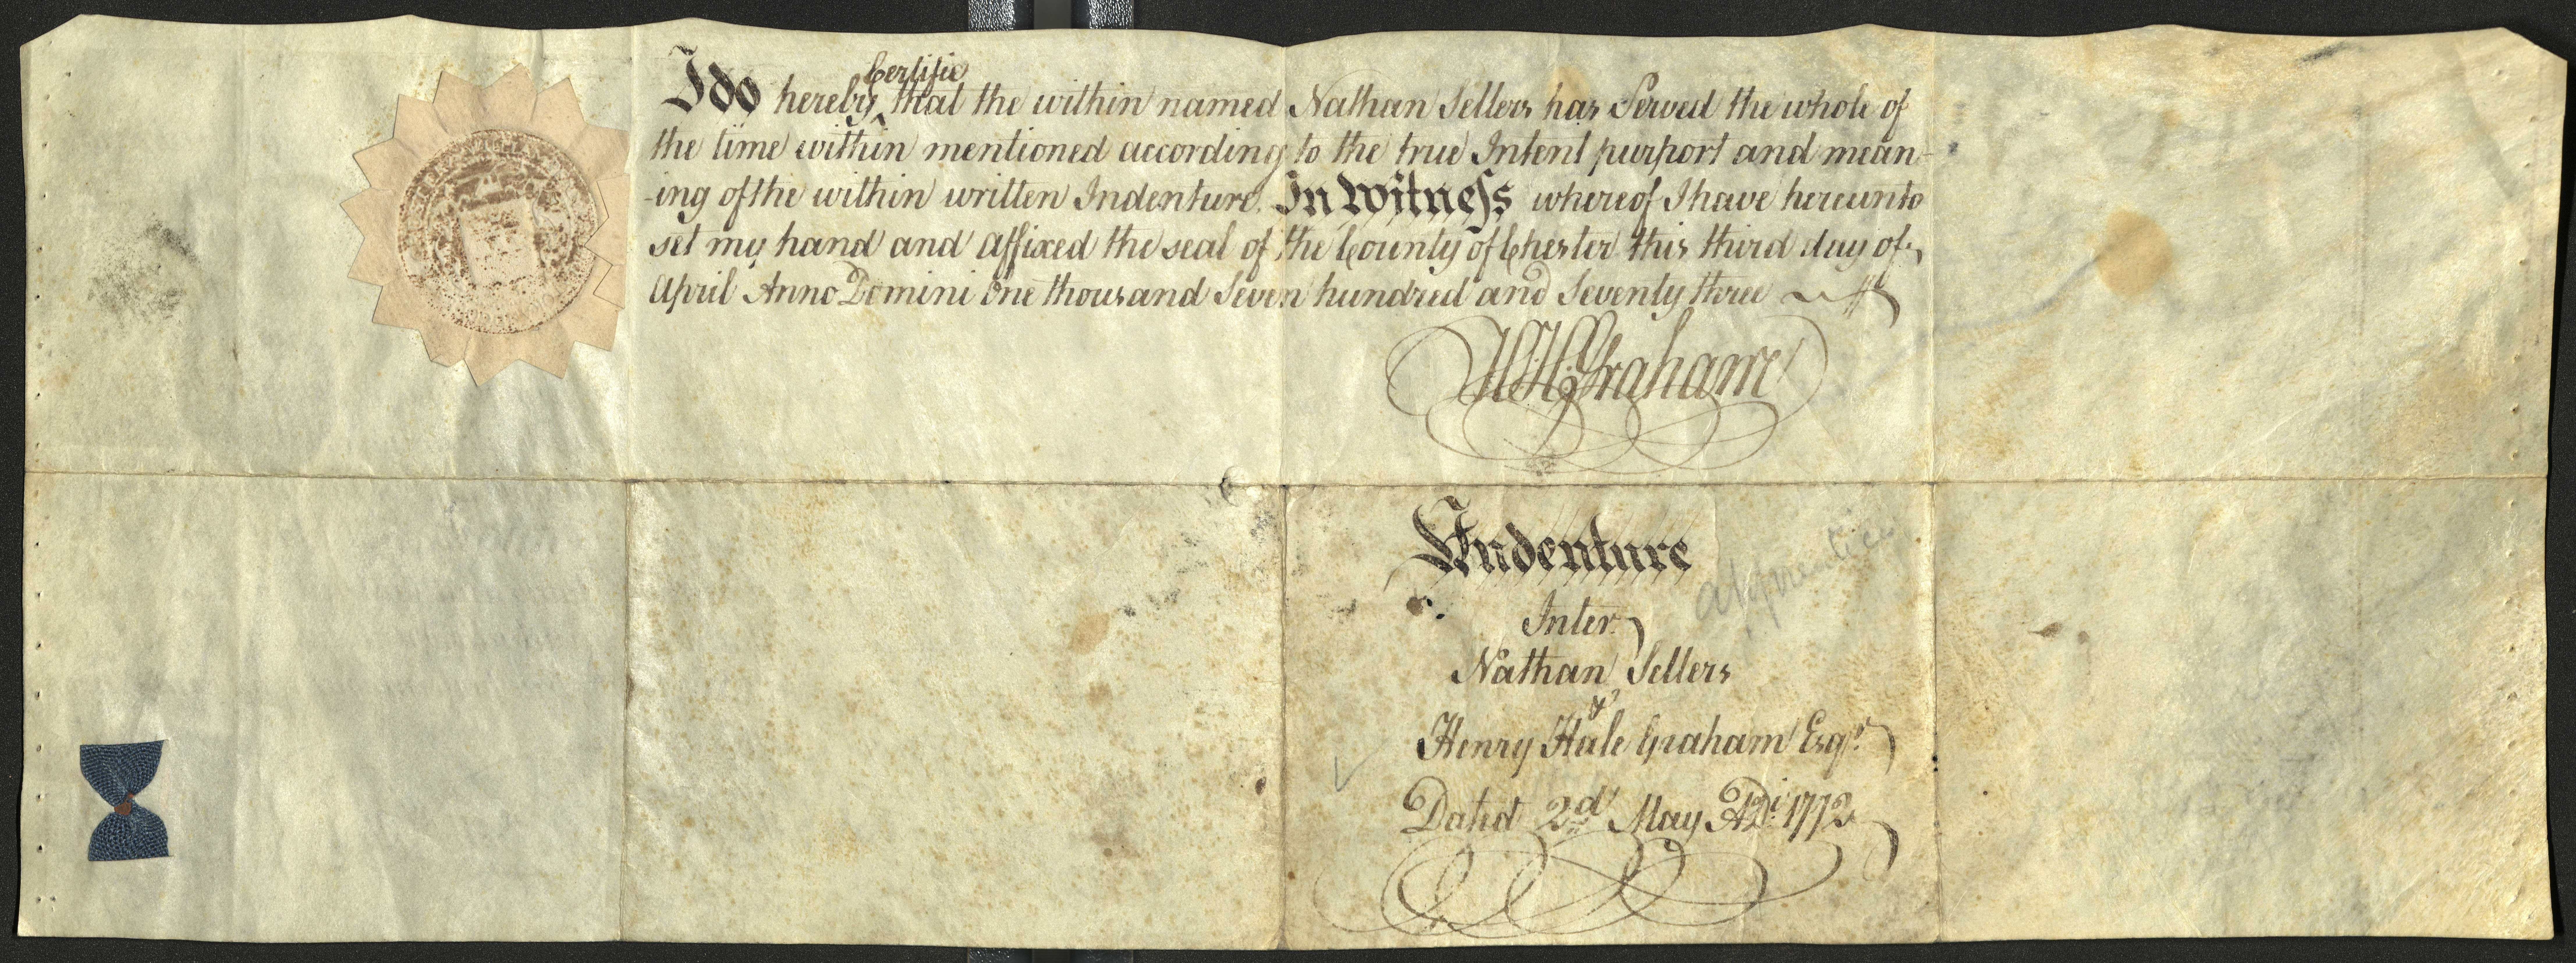 I do hereby Certifie that the within named Nathan Sellers has Served the whole of
the time within mentioned according to the true Intent purport and mean-
-ing of the within written Indenture. In Witness whereof I have hereunto
set my hand and affixed the seal of the County of Chester this third day of
April Anno Domini One thousand Seven hundred and Seventy three
H. H. Graham
Indenture
apprentice
Inter
Nathan Sellers
&
Henry Hale Graham Esqr.
Dated 2d May ADi 1772